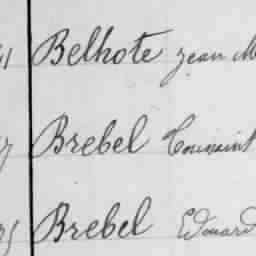 Belhote Jean M
Brebel Toussaint
Brebel Edouard